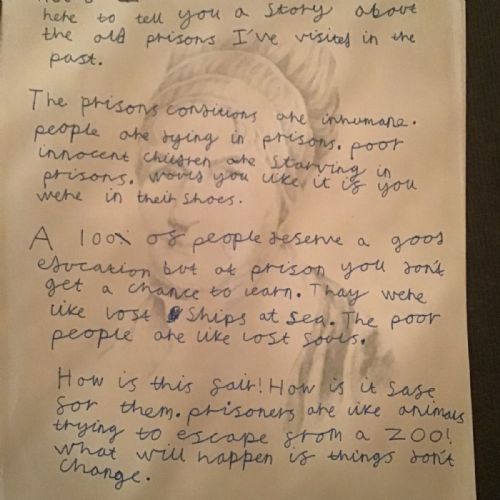 here to tell you a story about
the old prisons I've visited in the
past.
The prisons conditions are inhumane.
people are dying in prisons. poor
innocent children are starving in
prisons. would you like it if you
were in their shoes.
A 100% of people deserve a good
education but at prison you don't
get a chance to learn. Thay were
like lost ships at sea. The poor
people are like lost souls.
How is this fair! How is it safe
for them. prisoners are like animals
trying to escape from a ZOO!
what will happen if things don't
change.